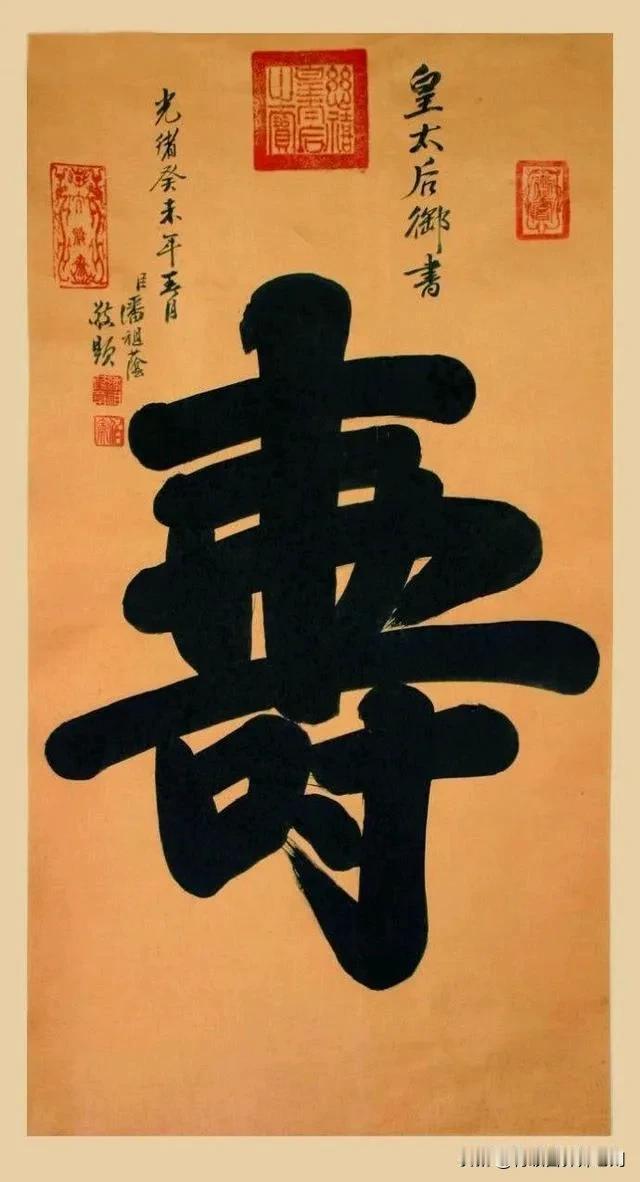 慈禧皇太后之寶
皇太后御書
壽
光緒癸未年五月
臣潘祖蔭
敬題